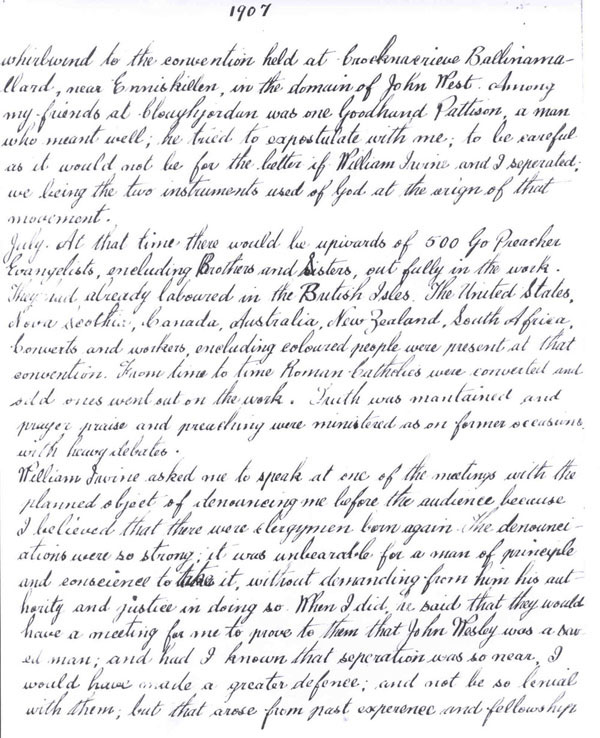 1907
whirlwind to the convention held at Crocknacrieve Ballinama-
llard, near Enniskillen, in the domain of John West. Among
my friends at Cloughjordan was one Goodhand Pattison, a man
who meant well; he tried to expostulate with me; to be careful
as it would not be for the better if William Irvine and I seperated;
we being the two instruments used of God at the orign of that
movement.
July. At that time there would be upwards of 500 Go Preacher
Evangelists, encluding Brothers and Sisters, out fully in the work.
They had already laboured in the British Isles. The United States,
Nova Scothia, Canada, Australia, New Zealand, South Africa,
Converts and workers, encluding coloured people were present at that
convention. From time to time Roman-Catholics were converted and
odd ones went out on the work. Truth was mantained and
prayer praise and preaching were ministered as on former occasions,
with heavy debates.
William Irvine asked me to speak at one of the meetings with the
planned object of denouncing me before the audience because
I believed that there were clergymen born again. The denounci-
ations were so strong; it was unbearable for a man of principle
and conscience to take it, without demanding from him his aut-
hority and justice in doing so. When I did, he said that they would
have a meeting for me to prove to them that John Wesley was a sav-
ed man; and had I known that seperation was so near, I
would have made a greater defence; and not be so lenial
with them; but that arose from past experence and fellowship